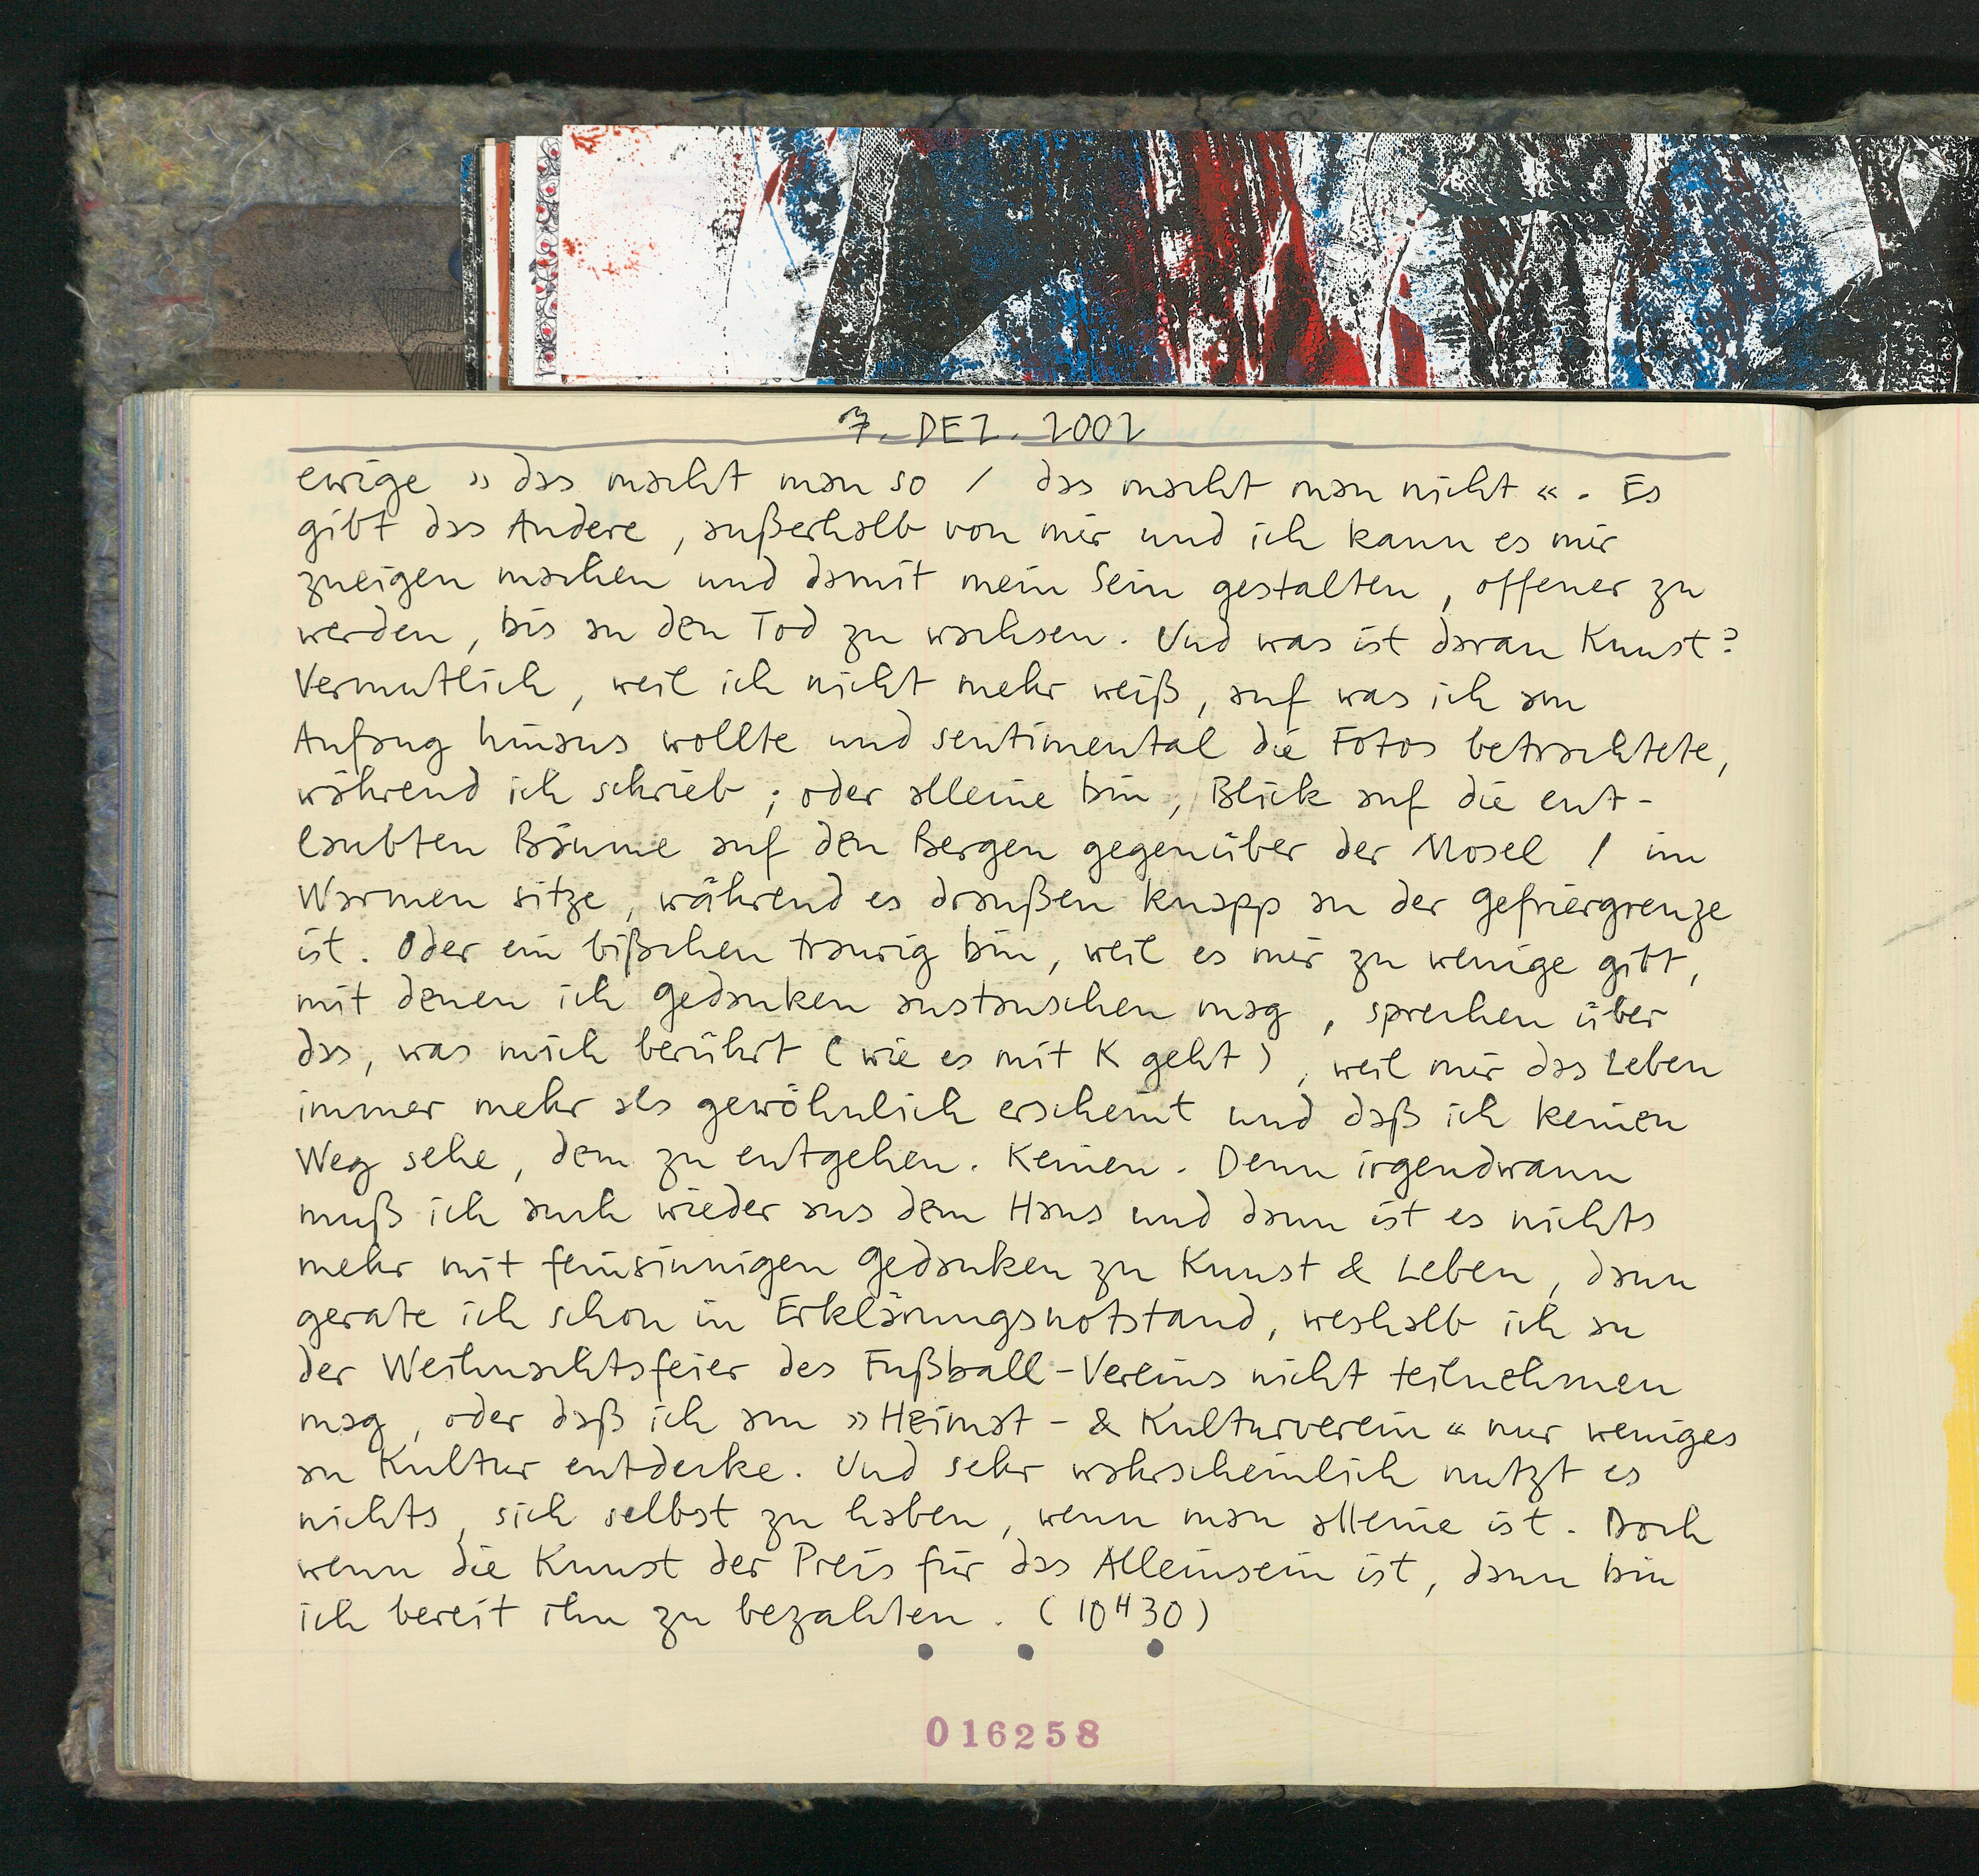 7. DEZ. 2002
ewige » das macht man so / das macht man nicht «. Es
gibt das Andere, außerhalb von mir und ich kann es mir
zueigen machen und damit mein Sein gestalten, offener zu
werden, bis an den Tod zu wachsen. Und was ist daran Kunst?
Vermutlich, weil ich nicht mehr weiß, auf was ich am
Anfang hinaus wollte und sentimental die Fotos betrachtete,
während ich schrieb; oder alleine bin, Blick auf die ent-
laubten Bäume auf den Bergen gegenüber der Mosel / im
Warmen sitze, während es draußen knapp an der Gefriergrenze
ist. Oder ein bißchen traurig bin, weil es mir zu wenige gibt,
mit denen ich Gedanken austauschen mag, sprechen über
das, was mich berührt (wie es mit K geht), weil mir das Leben
immer mehr als gewöhnlich erscheint und daß ich keinen
Weg sehe, dem zu entgehen. Keinen. Denn irgendwann
muß ich auch wieder aus dem Haus und dann ist es nichts
mehr mit feinsinnigen Gedanken zu Kunst & Leben, dann
gerate ich schon in Erklärungsnotstand, weshalb ich an
der Weihnachtsfeier des Fußball-Vereins nicht teilnehmen
mag, oder daß ich am » Heimat- & Kulturverein « nur weniges
an Kultur entdecke. Und sehr wahrscheinlich nutzt es
nichts, sich selbst zu haben, wenn man alleine ist. Doch
wenn die Kunst der Preis für das Alleinsein ist, dann bin
ich bereit ihn zu bezahlen. (10H30)
016258